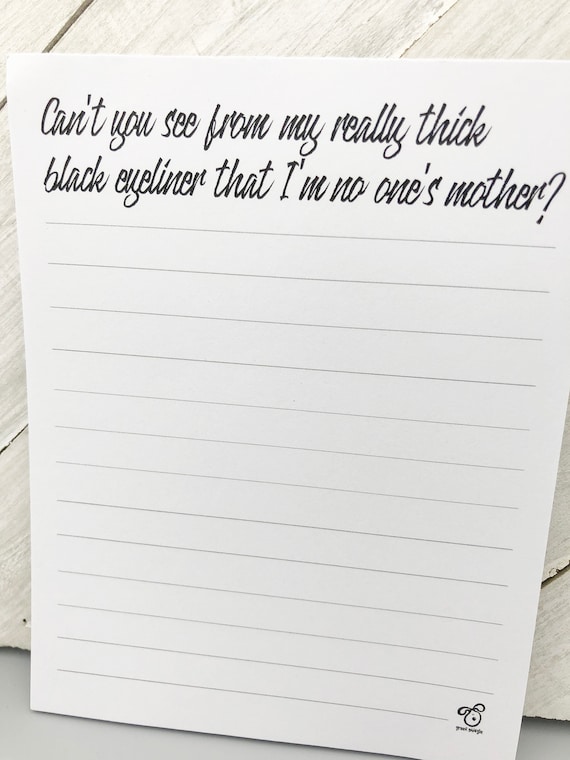 Can't you see from my really thick
black eyeliner that I'm no one's mother?